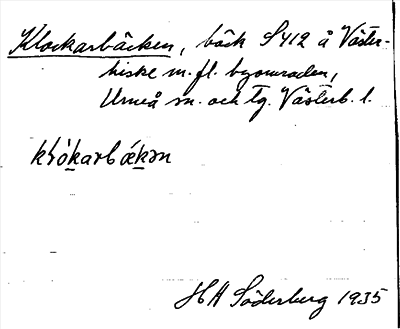 Klockarbäcken, bäck S 412 å Väster-
hiske m. fl. byområden,
Umeå sn. och tg. Västerb. l.
klókarbǽkən
H A Söderberg 1935